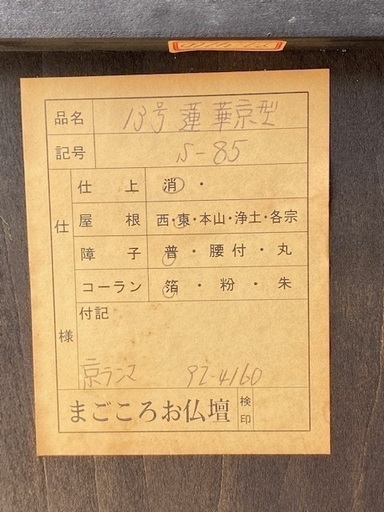 品名 13号 蓮華京型
記号 S-85
仕様
仕上 消・
屋根 西・東・本山・浄土・各宗
障子 普・腰付・丸
コーラン 箔・粉・朱
付記
京ランマ 92-4160
まごころお仏壇 検印